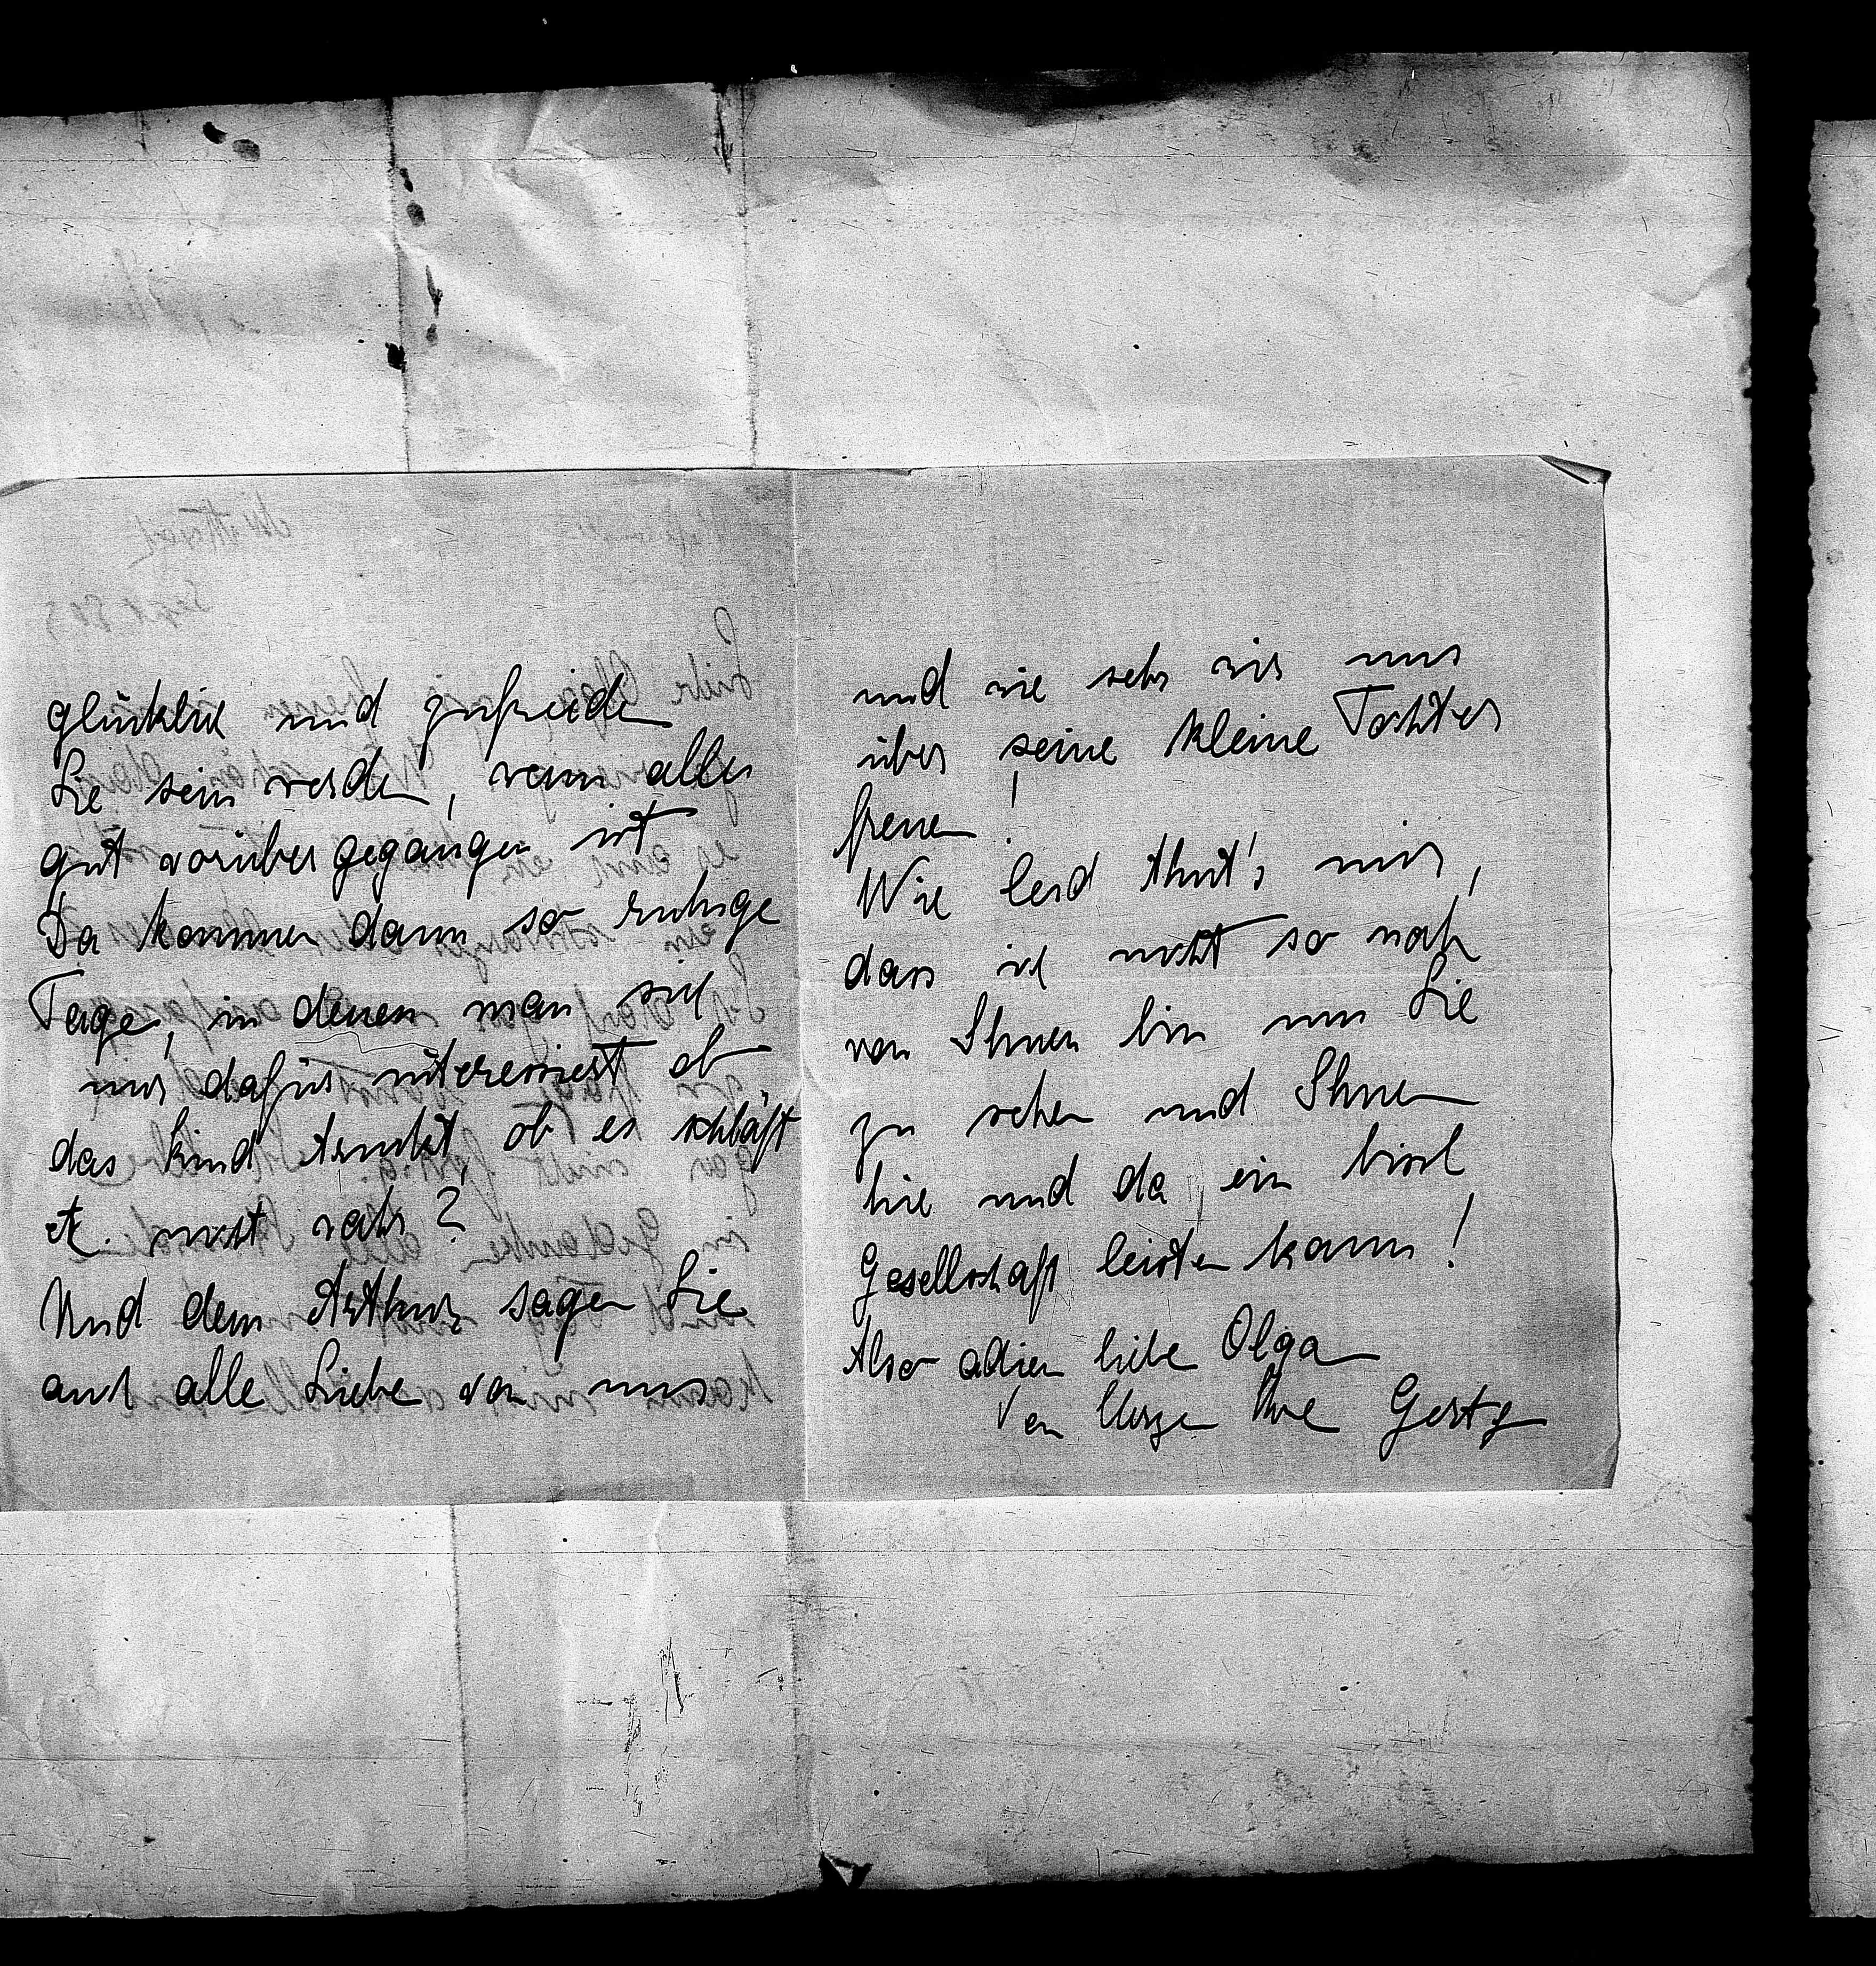 glücklich und zufrieden
Sie sein werden, wenn alles
gut vorübergegangen ist
Da kommen dann so ruhige
Tage, in denen man sich
nur dafür interessiert ob
das Kind trinkt, ob es schläft
etc. nicht wahr?
Und dem Arthur sagen Sie
auch alle Liebe von uns
und wie sehr wir uns
über seine kleine Tochter
freuen!
Wie leid thut's mir,
dass ich nicht so nah
von Ihnen bin um Sie
zu sehen und Ihnen
hie und da ein bissl
Gesellschaft leisten kann!
Also adieu liebe Olga
Von Herzen Ihre Gerty